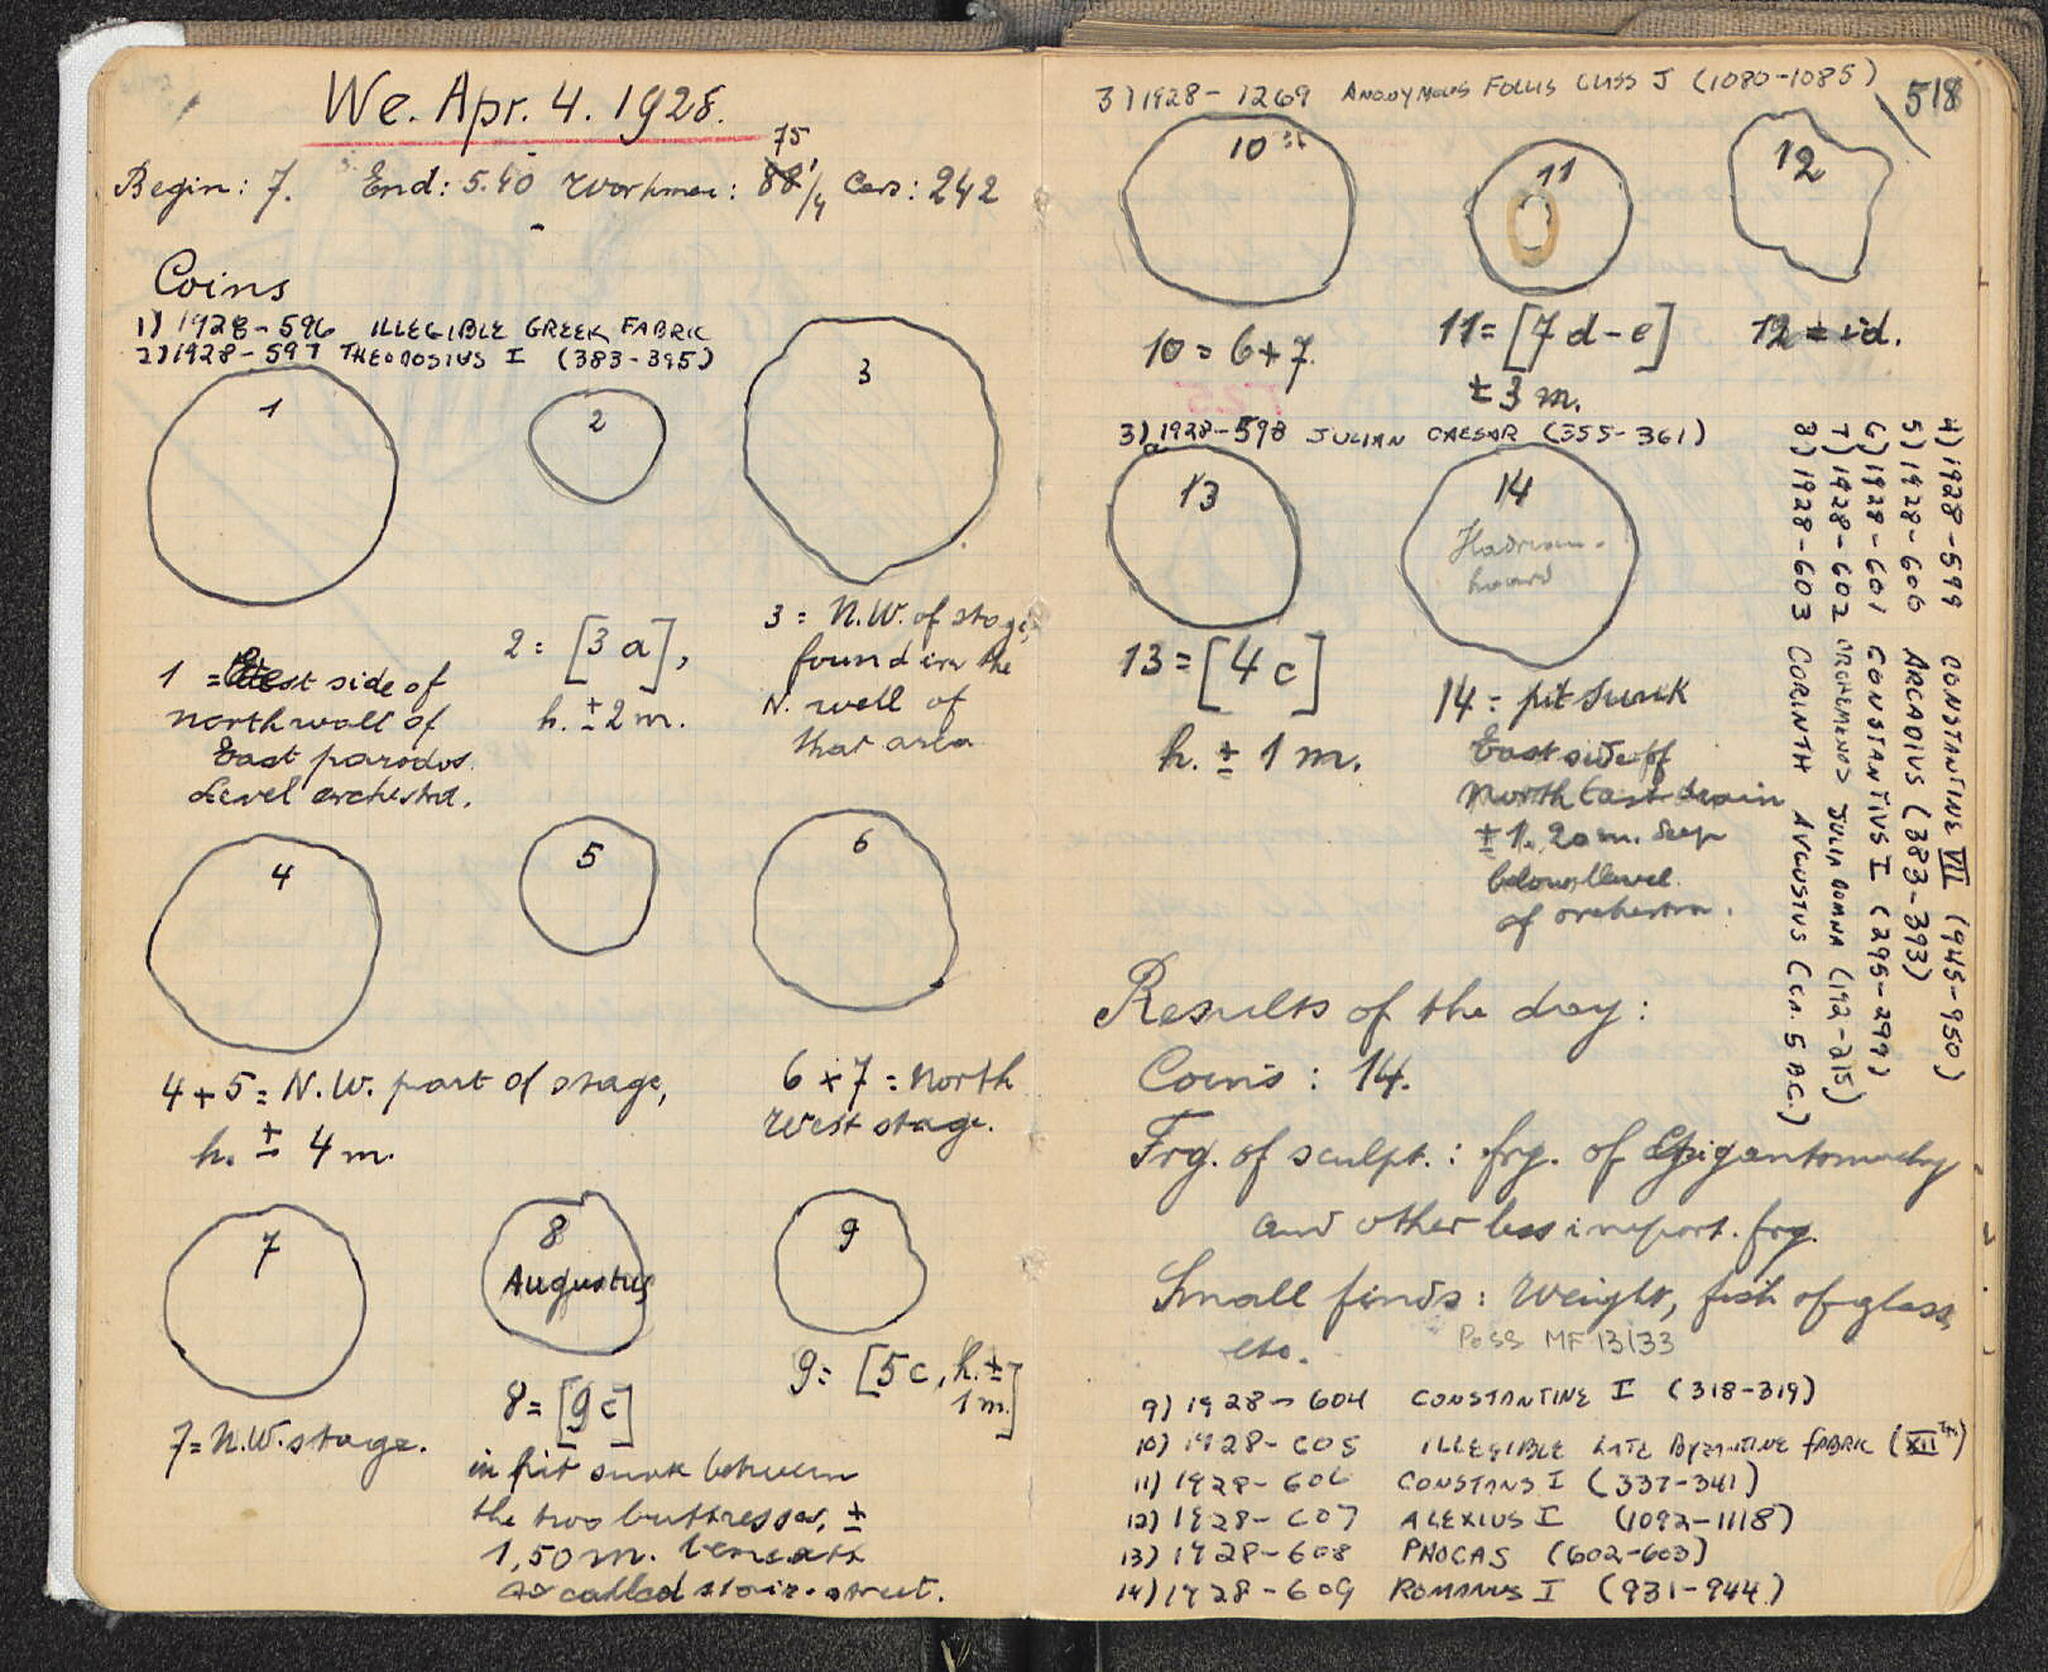 We. Apr. 4. 1928.
Begin: 7. End: 5.40 Workmen: 75 88 1/4 Cars: 242
Coins
1) 1928-596 ILLEGIBLE GREEK FABRIC
2) 1928-597 THEODOSIUS I (383-395)
1
2
3
1 = East side of
north wall of
East parodos.
Level orchestra.
2 = [3 a],
h. ± 2 m.
3 = N.W. of stage,
found in the
N. well of
that area
4
5
6
4 + 5 = N.W. part of stage,
h. ± 4 m.
6 + 7 = North
West stage.
7
8
Augustus
9
7 = N.W. stage.
8 = [9 c]
in pit sunk between
the two buttresses, ±
1,50 m. beneath
so called stair-street.
9 = [5 c, h. ±
1 m.]
518
3) 1928-1269 ANONYMOUS FOLLIS CLASS J (1080-1085)
10
11
12
10 = 6 + 7.
11 = [7 d-e]
± 3 m.
12 = id.
3)a 1928-598 JULIAN CAESAR (355-361)
13
14
Hadrian.
hoard
13 = [4 c]
h. ± 1 m.
14 = pit sunk
East side of
North East drain
± 1.20 m. deep
below level
of orchestra.
4) 1928-599 CONSTANTINE VII (945-950)
5) 1928-600 ARCADIUS (383-393)
6) 1928-601 CONSTANTIUS I (295-299)
7) 1928-602 ORCHEMENOS JULIA DOMNA (192-215)
8) 1928-603 CORINTH AUGUSTUS (CA. 5 B.C.)
Results of the day:
Coins: 14.
Frg. of sculpt.: frg. of Gigantomachy
and other less import. frg.
Small finds: Weight, fish of glass,
etc.
POSS MF 13133
9) 1928-604 CONSTANTINE I (318-319)
10) 1928-605 ILLEGIBLE LATE BYZANTINE FABRIC (XII TH)
11) 1928-606 CONSTANS I (337-341)
12) 1928-607 ALEXIUS I (1092-1118)
13) 1928-608 PHOCAS (602-603)
14) 1928-609 ROMANUS I (931-944)